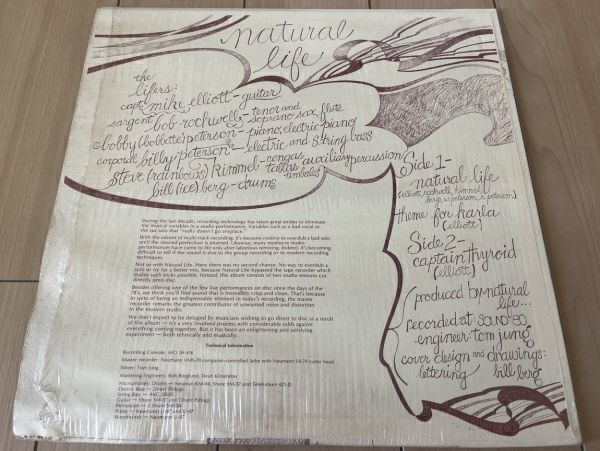 natural
life
the
lifers:
capt. mike elliott - guitar
sargent bob rockwell - tenor and
soprano sax, flute
bobby (bobbette) peterson - piano, electric piano
corporal billy peterson - electric and string bass
steve (rainbows) kimmel - congas, auxiliary percussion
tablas
timbales
bill (ice) berg - drums
Side 1 -
natural life
(elliott, rockwell, kimmel,
berg, w. peterson, r. peterson)
theme for karla
(elliott)
Side 2 -
captain thyroid
(elliott)
produced by natural
life...
recorded at: SOUND 80
engineer: tom jung
cover design and drawings:
lettering bill berg
During the last decade, recording technology has taken great strides to eliminate
the musical variables in a studio performance. Variables such as a bad vocal or
the sax solo that "really doesn't go anyplace."
With the advent of multi-track recording, it's become routine to overdub a bad solo
until the desired perfection is attained. Likewise, many mediocre studio
performances have come to life only after laborious remixing. Indeed, it's becoming
difficult to tell if the sound is due to the group recording or to modern recording
techniques.
Not so with Natural Life. Here there was no second chance. No way to overdub a
solo or go for a better mix, because Natural Life bypassed the tape recorder which
makes such tricks possible. Instead, this album consists of two studio sessions cut
directly onto disc.
Besides offering one of the few live performances on disc since the days of the
78's, we think you'll find sound that is incredibly crisp and clean. That's because
in spite of being an indispensable element in today's recording, the master
recorder remains the greatest contributor of unwanted noise and distortion
in the modern studio.
We don't expect to be deluged by musicians wishing to go direct to disc as a result
of this album — it's a very involved process with considerable odds against
everything coming together. But it has been an enlightening and satisfying
experiment — both technically and musically.
Technical Information
Recording Console: MCI JH-416
Master recorder: Neumann VMS-70 computer-controlled lathe with Neumann SX-74 cutter head.
Mixer: Tom Jung
Mastering Engineers: Bob Berglund, Dean Klinefelter
Microphones: Drums — Neuman KM-86, Shure SM-57 and Telefunken 421-D.
Electric Bass — Direct Pickup
String Bass — AKG
Guitar — Shure SM-57 and Direct Pickup
Percussion — 2 Shure SM-58
Piano — Neumann U-87 and U-47
Woodwinds — Neumann U-87